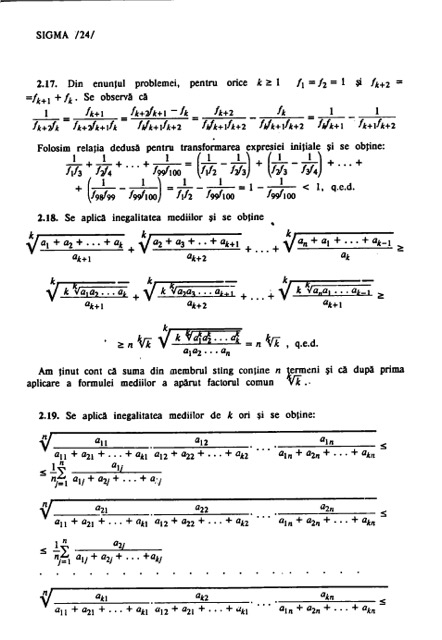 SIGMA /24/
2.17. Din enunțul problemei, pentru orice k ≥ 1 f₁ = f₂ = 1 și f_{k+2} =
= f_{k+1} + f_k. Se observă că
1/(f_{k+2}f_k) = f_{k+1}/(f_{k+2}f_{k+1}f_k) = (f_{k+2} − f_k)/(f_k f_{k+1}f_{k+2}) = f_{k+2}/(f_k f_{k+1}f_{k+2}) − f_k/(f_k f_{k+1}f_{k+2}) = 1/(f_k f_{k+1}) − 1/(f_{k+1}f_{k+2})
Folosim relația dedusă pentru transformarea expresiei inițiale și se obține:
1/(f₁f₃) + 1/(f₂f₄) + . . . + 1/(f₉₉f₁₀₀) = (1/(f₁f₂) − 1/(f₂f₃)) + (1/(f₂f₃) − 1/(f₃f₄)) + . . . +
+ (1/(f₉₈f₉₉) − 1/(f₉₉f₁₀₀)) = 1/(f₁f₂) − 1/(f₉₉f₁₀₀) = 1 − 1/(f₉₉f₁₀₀) < 1, q.e.d.
2.18. Se aplică inegalitatea mediilor și se obține
ᵏ√((a₁ + a₂ + . . . + a_k)/a_{k+1}) + ᵏ√((a₂ + a₃ + . . + a_{k+1})/a_{k+2}) + . . . + ᵏ√((a_n + a₁ + . . . + a_{k−1})/a_k) ≥
ᵏ√((k ᵏ√(a₁a₂ . . . a_k))/a_{k+1}) + ᵏ√((k ᵏ√(a₂a₃ . . . a_{k+1}))/a_{k+2}) + . . . + ᵏ√((k ᵏ√(a_na₁ . . . a_{k−1}))/a_{k+1}) ≥
≥ n ᵏ√k ᵏ√((k ᵏ√(a₁ᵏa₂ᵏ . . . a_kᵏ))/(a₁a₂ . . . a_n)) = n ᵏ√k , q.e.d.
Am ținut cont că suma din membrul stîng conține n termeni și că după prima
aplicare a formulei mediilor a apărut factorul comun ᵏ√k .
2.19. Se aplică inegalitatea mediilor de k ori și se obține:
ⁿ√(a₁₁/(a₁₁ + a₂₁ + . . . + a_{k1}) · a₁₂/(a₁₂ + a₂₂ + . . . + a_{k2}) · . . . · a_{1n}/(a_{1n} + a_{2n} + . . . + a_{kn})) ≤
≤ 1/n Σ_{j=1}^{n} a_{1j}/(a_{1j} + a_{2j} + . . . + a_{·j})
ⁿ√(a₂₁/(a₁₁ + a₂₁ + . . . + a_{k1}) · a₂₂/(a₁₂ + a₂₂ + . . . + a_{k2}) · . . . · a_{2n}/(a_{1n} + a_{2n} + . . . + a_{kn})) ≤
≤ 1/n Σ_{j=1}^{n} a_{2j}/(a_{1j} + a_{2j} + . . . + a_{kj})
. . . . . . . . . . . . . . . . .
ⁿ√(a_{k1}/(a₁₁ + a₂₁ + . . . + a_{k1}) · a_{k2}/(a₁₂ + a₂₂ + . . . + a_{k2}) · . . . · a_{kn}/(a_{1n} + a_{2n} + . . . + a_{kn})) ≤